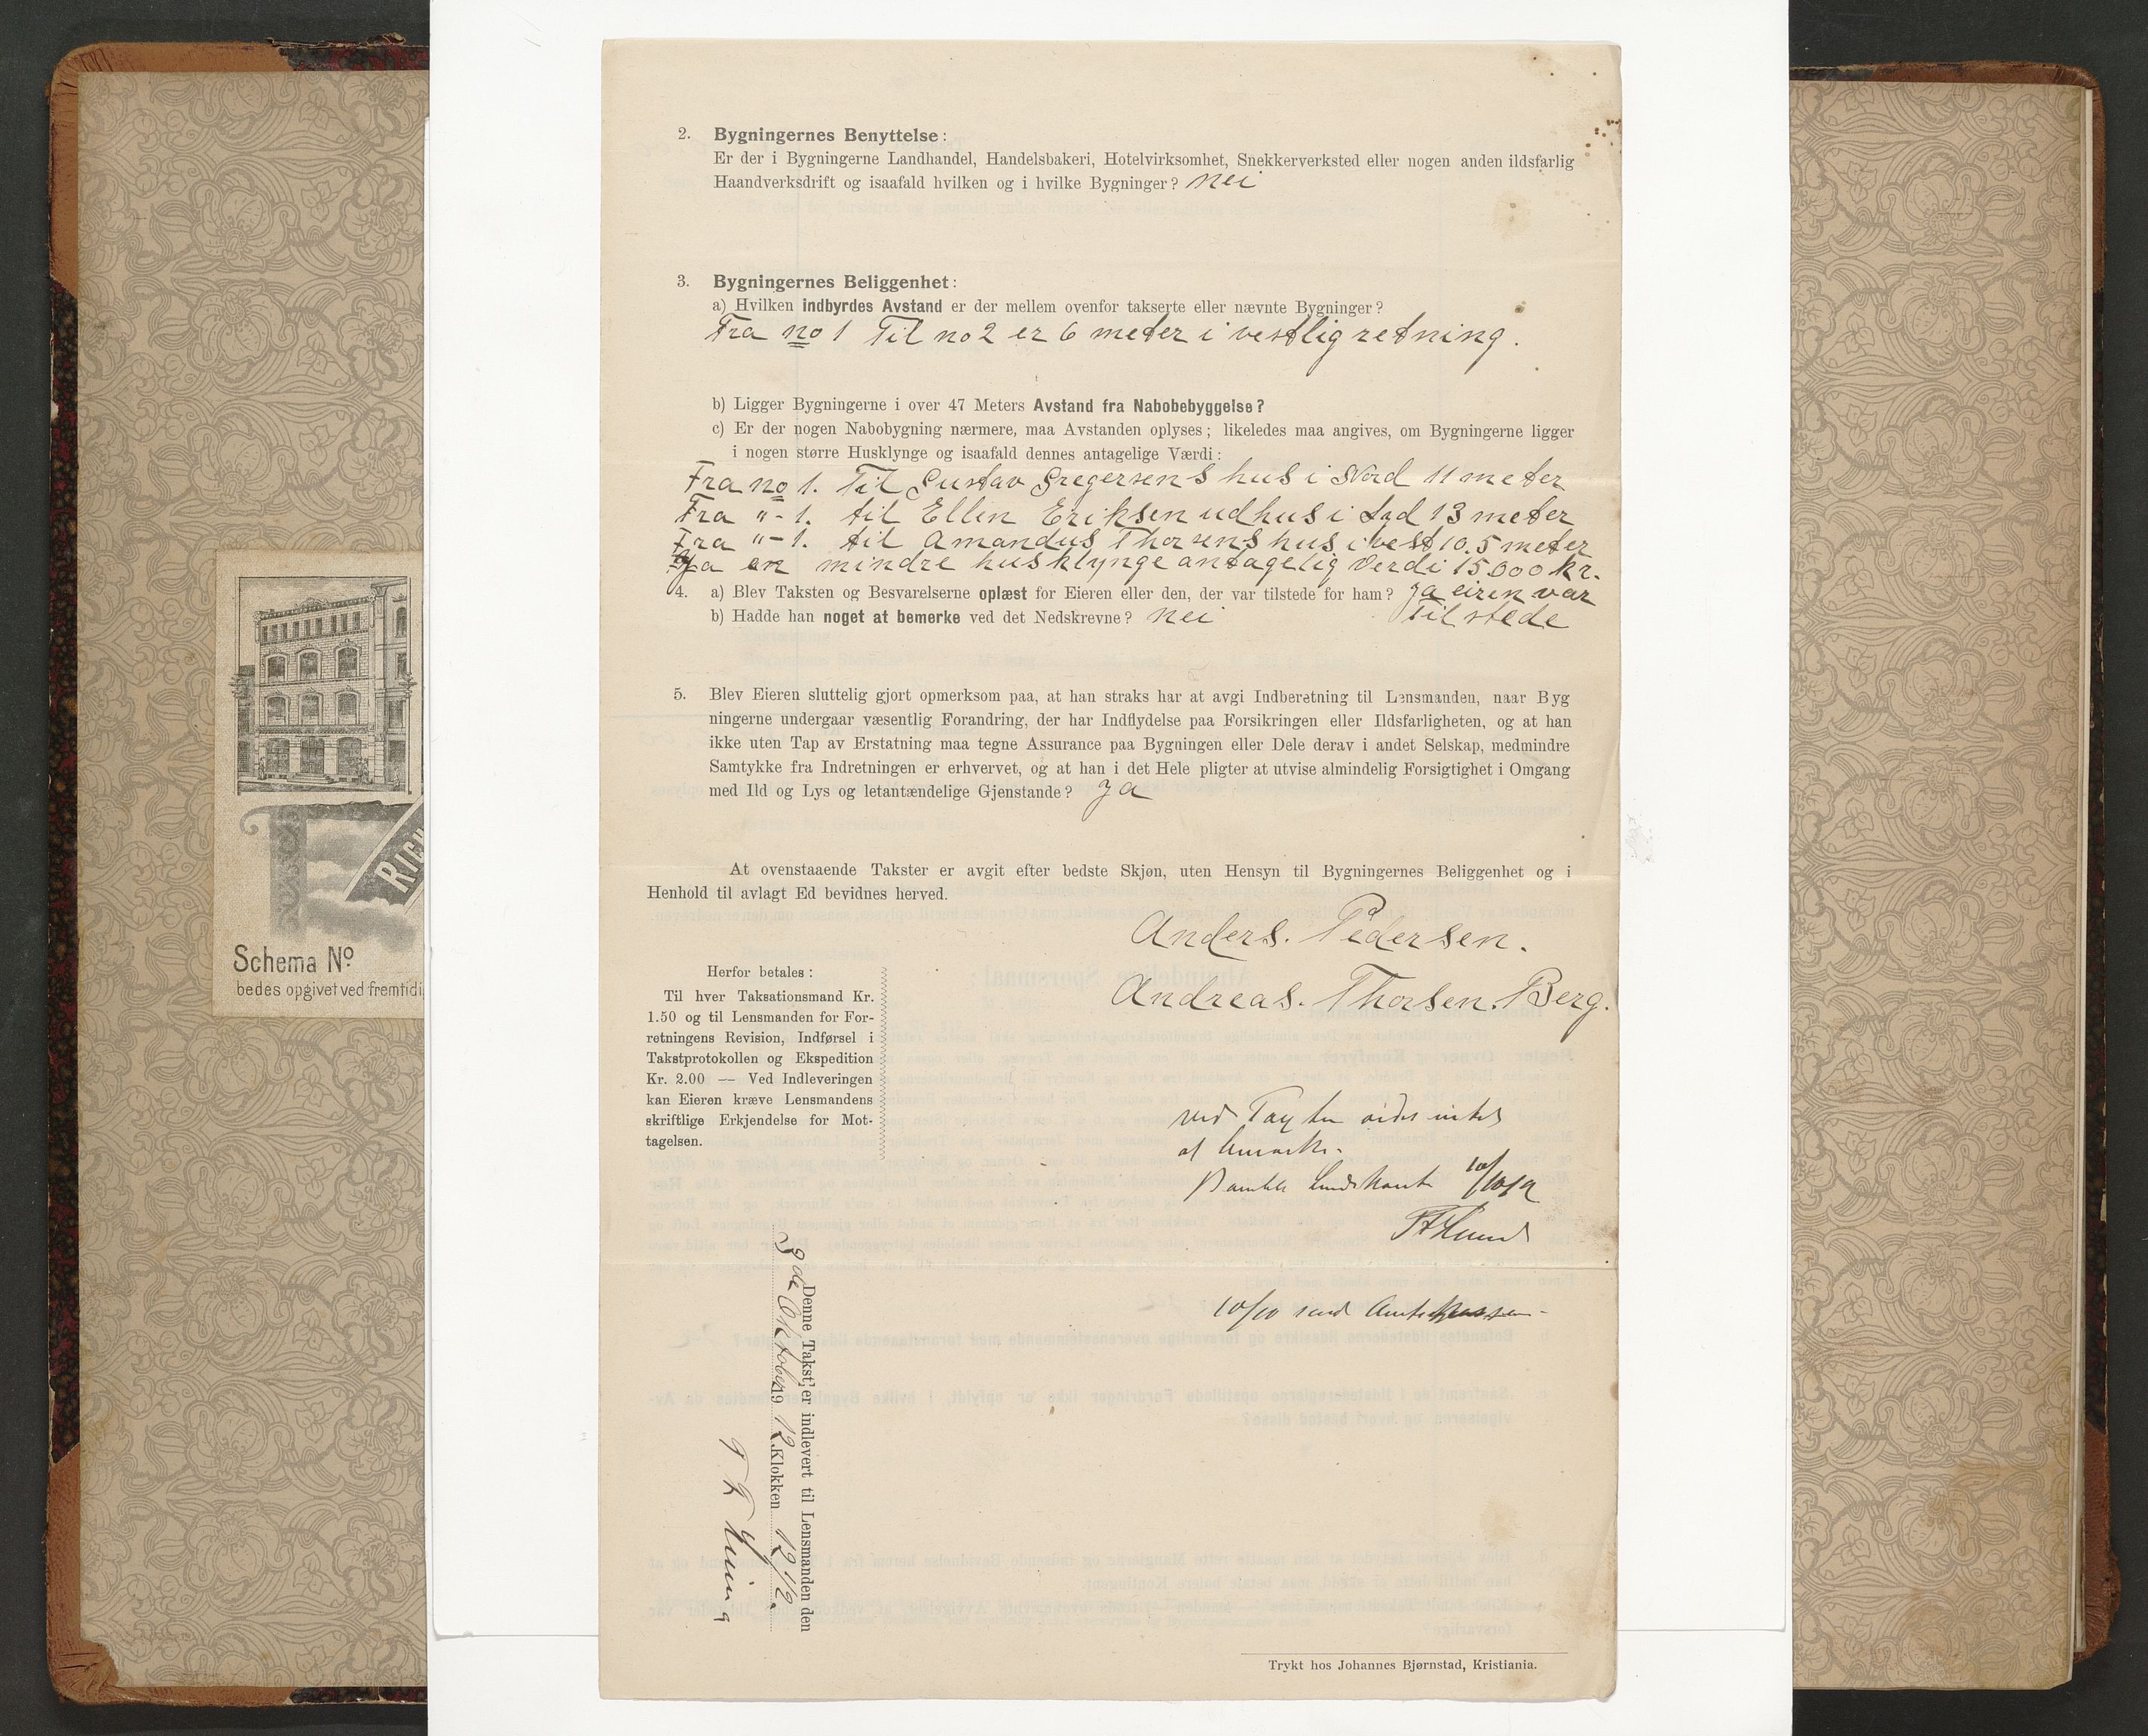 2. Bygningernes Benyttelse:
Er der i Bygningerne Landhandel, Handelsbakeri, Hotelvirksomhet, Snekkerverksted eller nogen anden ildsfarlig
Haandverksdrift og isaafald hvilken og i hvilke Bygninger? nei
3. Bygningernes Beliggenhet:
a) Hvilken indbyrdes Avstand er der mellem ovenfor takserte eller nævnte Bygninger?
Fra no 1 Til no 2 er 6 meter i vestlig retning.
b) Ligger Bygningerne i over 47 Meters Avstand fra Nabobebyggelse?
c) Er der nogen Nabobygning nærmere, maa Avstanden oplyses; likeledes maa angives, om Bygningerne ligger
i nogen større Husklynge og isaafald dennes antagelige Værdi:
Fra no 1. Til Gustav Gregersens hus i Nord 11 meter
Fra "- 1. til Ellen Eriksen udhus i 13 meter
Fra "- 1. til Amandus Thorsens hus i vest 10.5 meter
Ja en mindre husklynge antagelig Verdi 15.000 kr.
4. a) Blev Taksten og Besvarelserne oplæst for Eieren eller den, der var tilstede for ham? Ja eiren var
b) Hadde han noget at bemerke ved det Nedskrevne? nei Tilstede
5. Blev Eieren sluttelig gjort opmerksom paa, at han straks har at avgi Indberetning til Lensmanden, naar Byg
ningerne undergaar væsentlig Forandring, der har Indflydelse paa Forsikringen eller Ildsfarligheten, og at han
ikke uten Tap av Erstatning maa tegne Assurance paa Bygningen eller Dele derav i andet Selskap, medmindre
Samtykke fra Indretningen er erhvervet, og at han i det Hele pligter at utvise almindelig Forsigtighet i Omgang
med Ild og Lys og letantændelige Gjenstande? Ja
At ovenstaaende Takster er avgit efter bedste Skjøn, uten Hensyn til Bygningernes Beliggenhet og i
Henhold til avlagt Ed bevidnes herved.
Anders. Pedersen.
Andreas. Thorsen. Berg.
Herfor betales:
Til hver Taksationsmand Kr.
1.50 og til Lensmanden for For-
retningens Revision, Indførsel i
Takstprotokollen og Ekspedition
Kr. 2.00 — Ved Indleveringen
kan Eieren kræve Lensmandens
skriftlige Erkjendelse for Mot-
tagelsen.
ved Taxten vides intet
at bemærke.
Bamble 10/10 12
10/10 send
Denne Takst er indlevert til Lensmanden den
8de Oktober 1912. Klokken 12 1/2.
Trykt hos Johannes Bjørnstad, Kristiania.
Schema No
bedes opgivet ved fremtidi
RICH